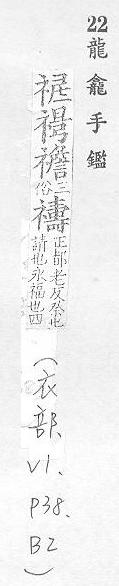 22 龍龕手鑑
三俗禱正都老反祭也請也求福也四
(衣部、V1、P38、B2)